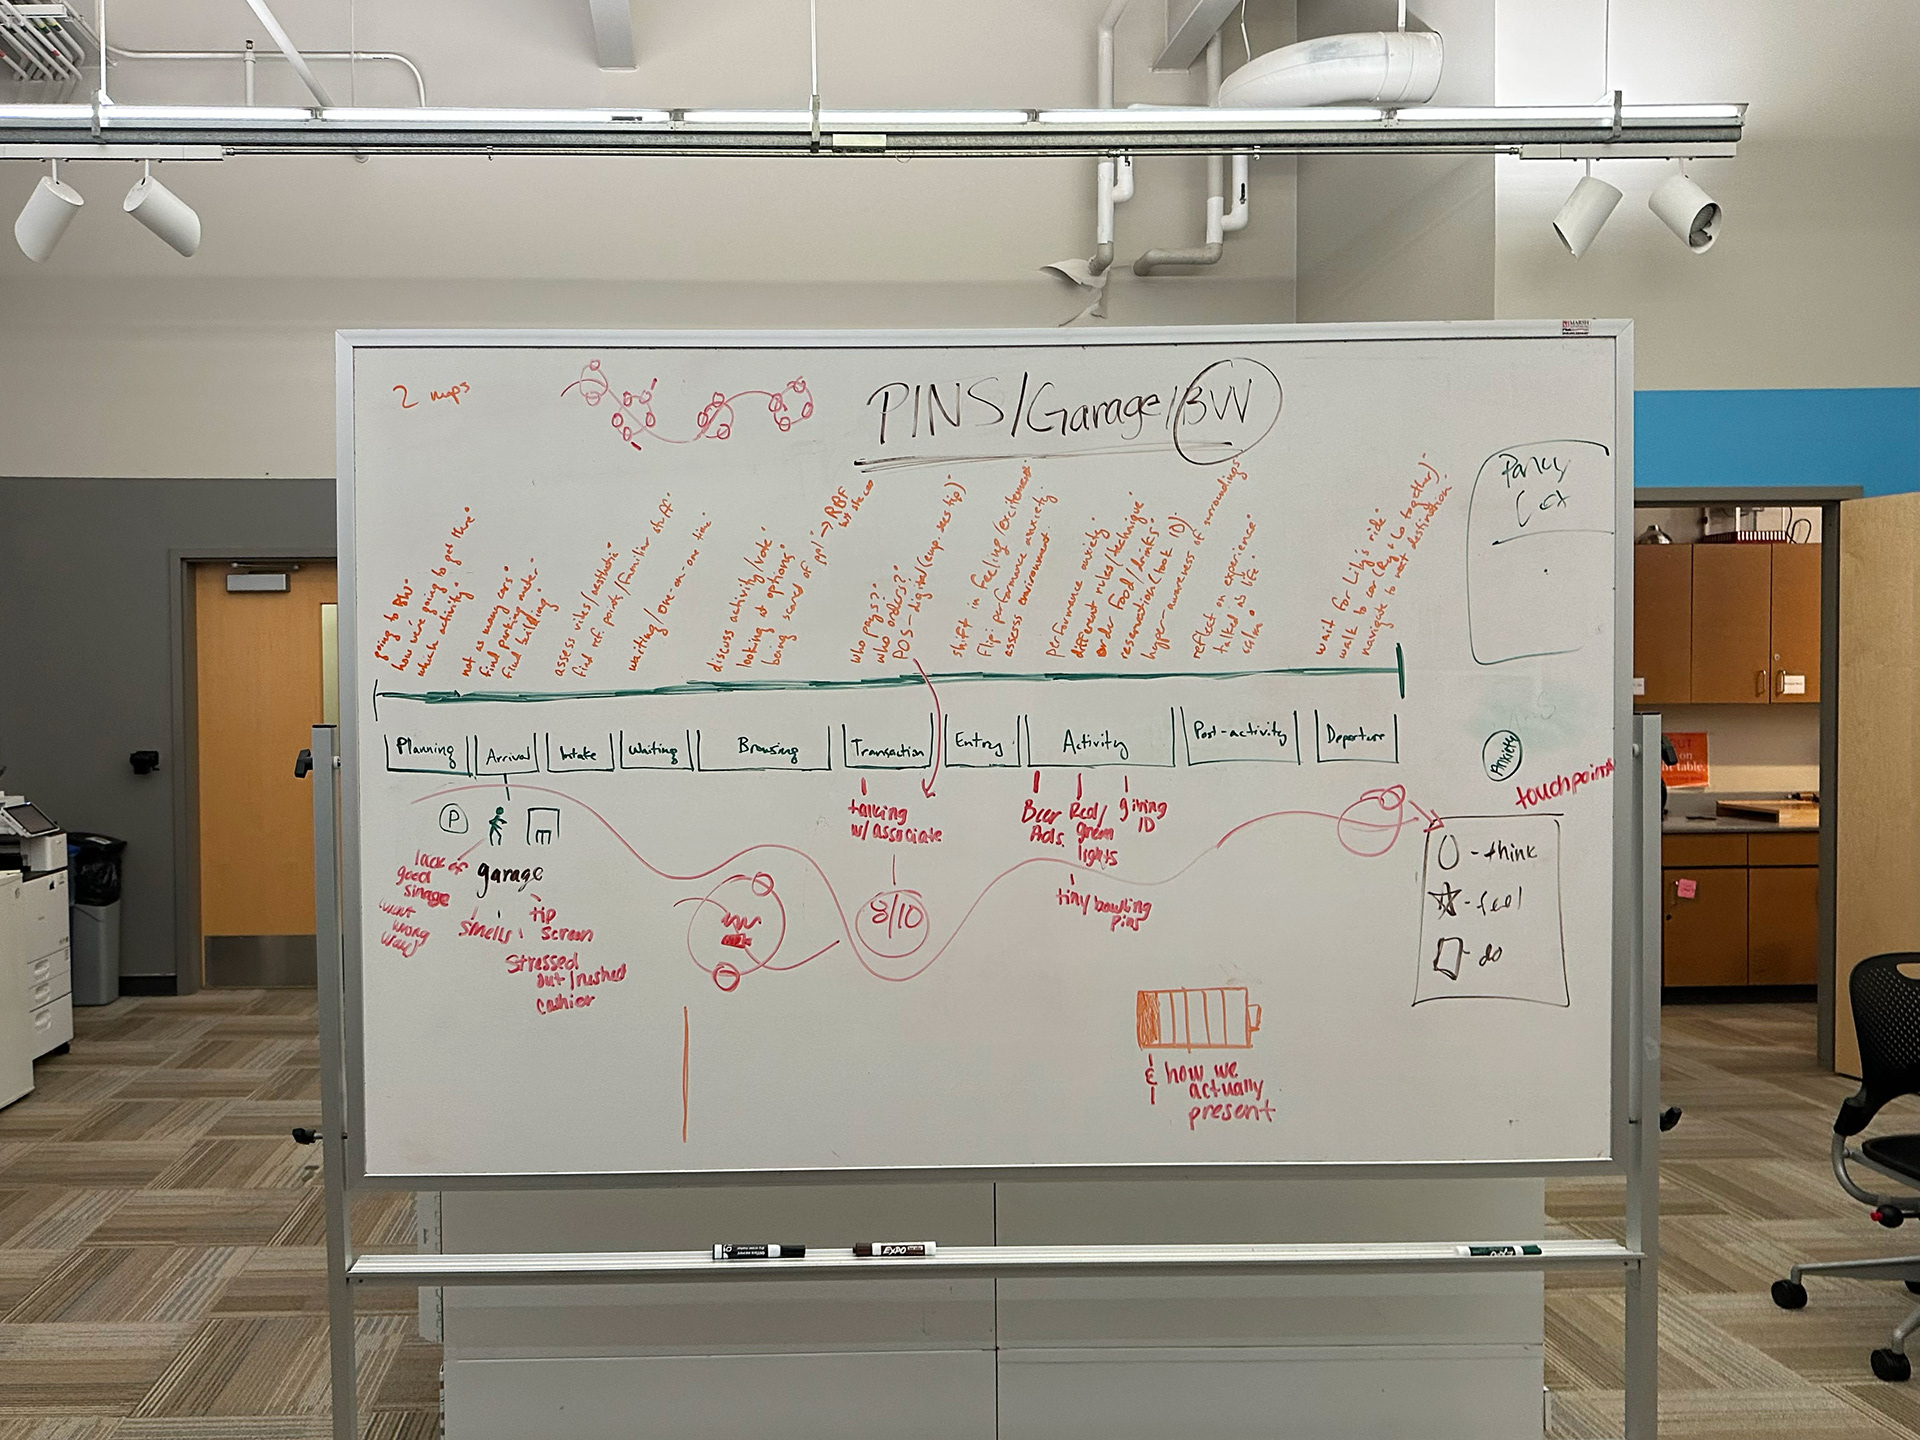 2 maps
PINS/Garage/BW
going to BW
how we're going to get there
which activity
not as many cars
find parking meter
find building
assess vibes/aesthetic
find ref. points/familiar stuff
waiting/one-on-one time
discuss activity/vote
looking at options
being scared of ppl → RBF
who pays?
who orders?
POS - digital (emp. sees tip)
shift in feeling/excitement
flip: performance anxiety
assess environment
performance anxiety
different rules/technique
order food/drinks
reservation (took ID)
hyper-awareness of surroundings
reflect on experience
talked ab life
calm
wait for Lily's ride
walk to car
navigate to next destination
Planning
Arrival
Intake
Waiting
Browsing
Transaction
Entry
Activity
Post-activity
Departure
P
garage
lack of
good
sinage
went
wrong
way
smells
tip
screen
stressed
out/rushed
cashier
talking
w/ associate
8/10
Beer
Ads.
Red/
green
lights
giving
ID
tiny bowling
pins
how we
actually
present
Anxiety
touchpoints
- think
- feel
- do
EXPO